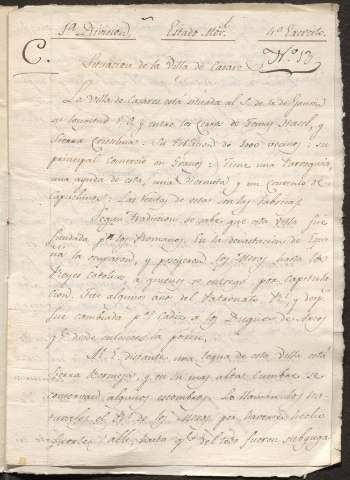 1ª Division. Estado Mor. 4º Exercito.
C. Nº 13
Situacion de la Villa de Casares
La Villa de Casares está situada al S. de la de Gaucin
su longitud y entre los
Sierra Crestelina. Su Poblacion de 1000 vecinos: su
principal comercio en Granos: Tiene una Parroquia,
una ayuda de esta, una Hermita y un Convento de
Capuchinos. Las rentas de estas son las
Segun tradicion se sabe que esta Villa fue
fundada pr los Romanos. En la devastacion de Espa
ña la ocuparon, y poseyeron los Moros hasta los
Reyes Catolicos, á quienes se entregó por capitula
cion. Fue algunos años del Patronato Rl. y despˢ
fue cambiada pr Cadiz á los Duques de Arcos
qe. desde entonces la poseen.
Al E. distante una legua de esta villa está
Sierra Bermeja, y en su mas alta cumbre se
conservan algunos escombros. Lo llaman los na
turales el de los Moros por haverse hecho
fuertes alli, hasta qe. del todo fueron subyuga